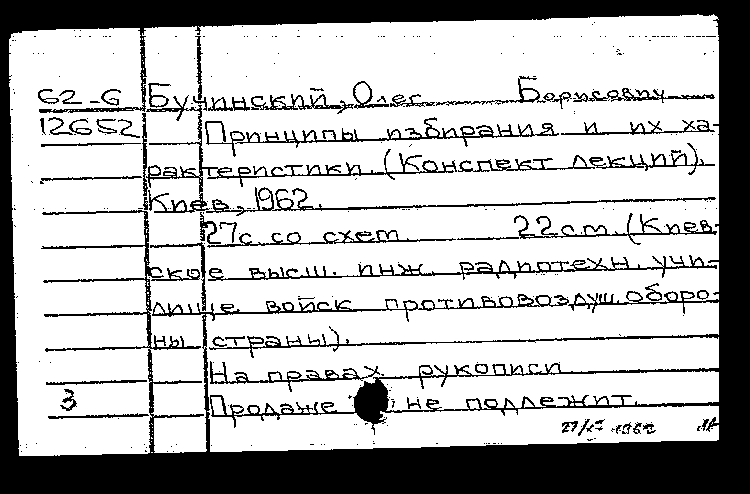 62-6 Бучинский, Олег Борисович
12652 Принципы избирания и их ха-
рактеристики. (Конспект лекций).
Киев, 1962.
27с. со схем. 22см. (Киев-
ское высш. инж. радиотехн. учи-
лище войск противовоздуш. оборо-
ны страны).
На правах рукописи
3 Продаже не подлежит.